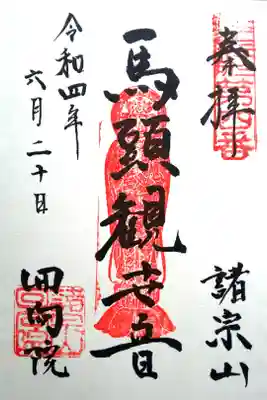 奉拝
諸宗山
馬頭観世音
令和四年
六月二十日
回向院